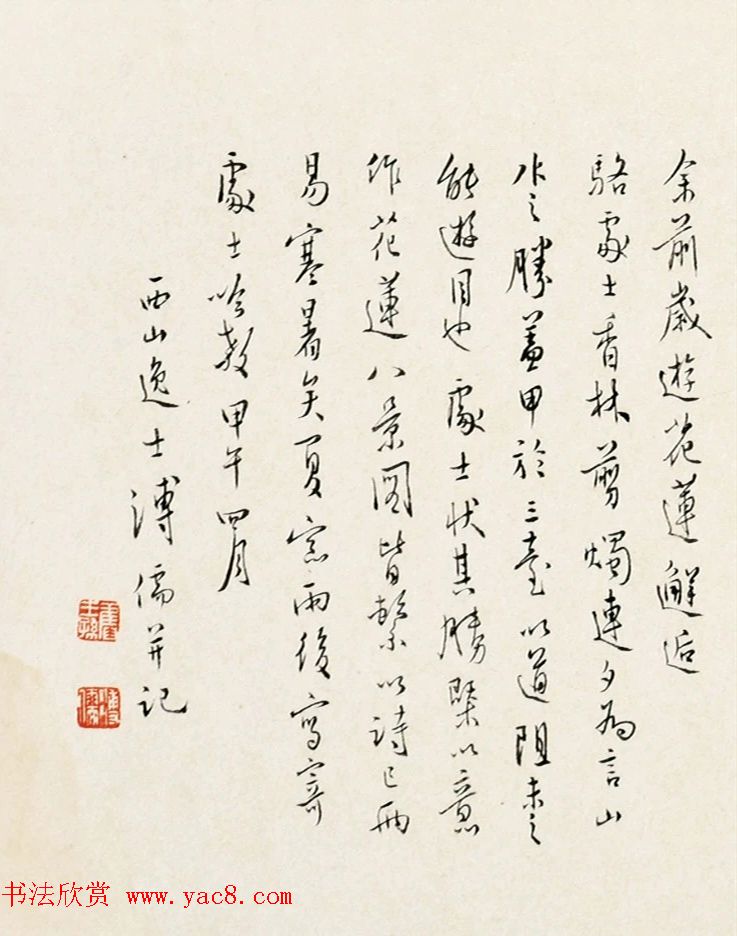 余前歲遊花蓮邂逅
駱處士香林剪燭連夕為言山
水之勝蓋甲於三臺以道阻未之
能遊目也處士狀其勝槩以意
作花蓮八景圖皆繫以詩已兩
易寒暑矣夏窗雨後寫寄
處士吟教甲午四月
西山逸士溥儒并記
舊王孫
溥儒
书法欣赏 www.yac8.com